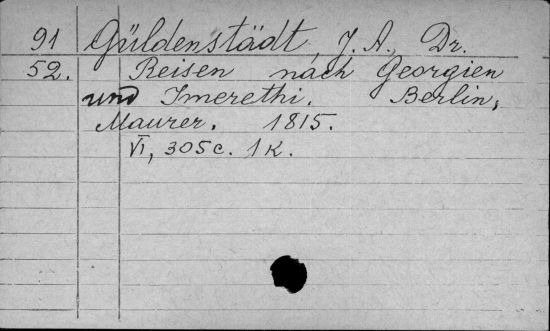 91 Güldenstädt, J. A., Dr.
52. Reisen nach Georgien
und Imerethi. Berlin,
Maurer. 1815.
VI, 305c. 1K.